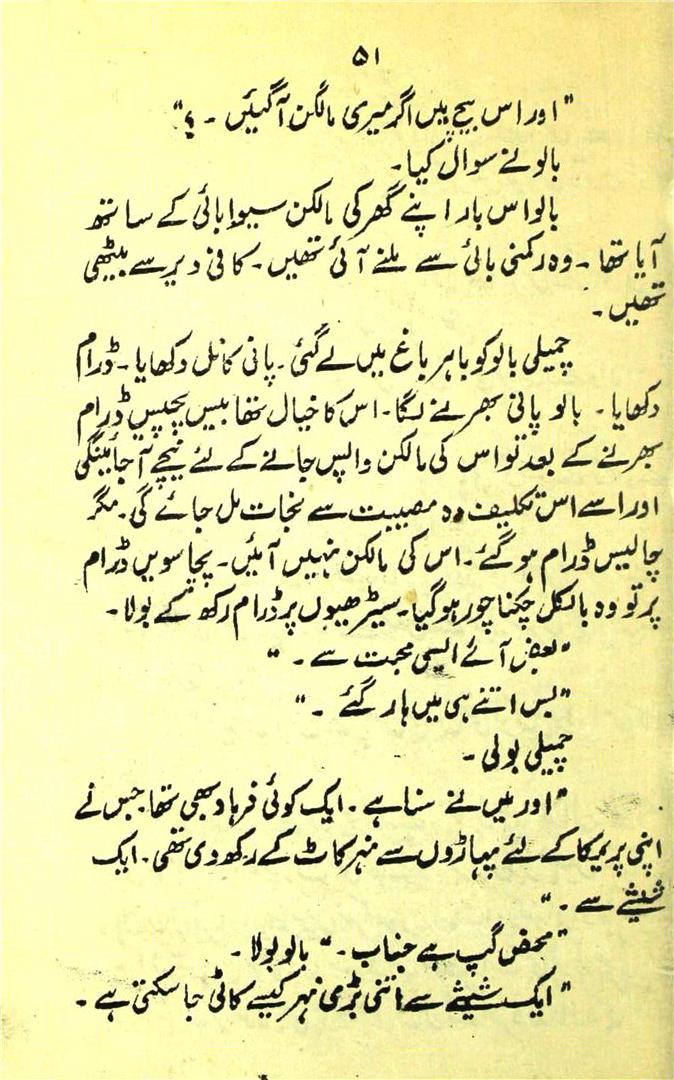 ۵۱
"اور اس بیچ میں اگر میری مالکن آگئیں ۔ ؟"
بالو نے سوال کیا۔
بالو اس بار اپنے گھر کی مالکن سیوا بائی کے ساتھ
آیا تھا ۔ وہ رکمنی بائی سے ملنے آئی تھیں۔ کافی دیر سے بیٹھی
تھیں ۔
چمیلی بالو کو باہر باغ میں لے گئی ۔ پانی کا نل دکھایا ۔ ڈرام
دکھایا ۔ بالو پانی بھرنے لگا۔ اس کا خیال تھا بیس پچیس ڈرام
بھرنے کے بعد تو اس کی مالکن واپس جانے کے لئے نیچے آجائینگی
اور اسے اس تکلیف دہ مصیبت سے نجات مل جائے گی ۔ مگر
چالیس ڈرام ہو گئے ۔ اس کی مالکن نہیں آئیں ۔ پچاسویں ڈرام
پر تو وہ بالکل چکنا چور ہو گیا۔ سیڑھیوں پر ڈرام رکھ کے بولا ۔
"بعض آئے ایسی محبت سے ۔ "
"بس اتنے ہی میں ہار گئے ۔ "
چمیلی بولی ۔
"اور میں نے سنا ہے ۔ ایک کوئی فرہاد بھی تھا جس نے
اپنی پریمکا کے لئے پہاڑوں سے نہر کاٹ کے رکھ دی تھی ۔ ایک
تیشے سے ۔ "
"محض گپ ہے جناب ۔ " بالو بولا ۔
"ایک تیشے سے اتنی بڑی نہر کیسے کاٹی جا سکتی ہے ۔